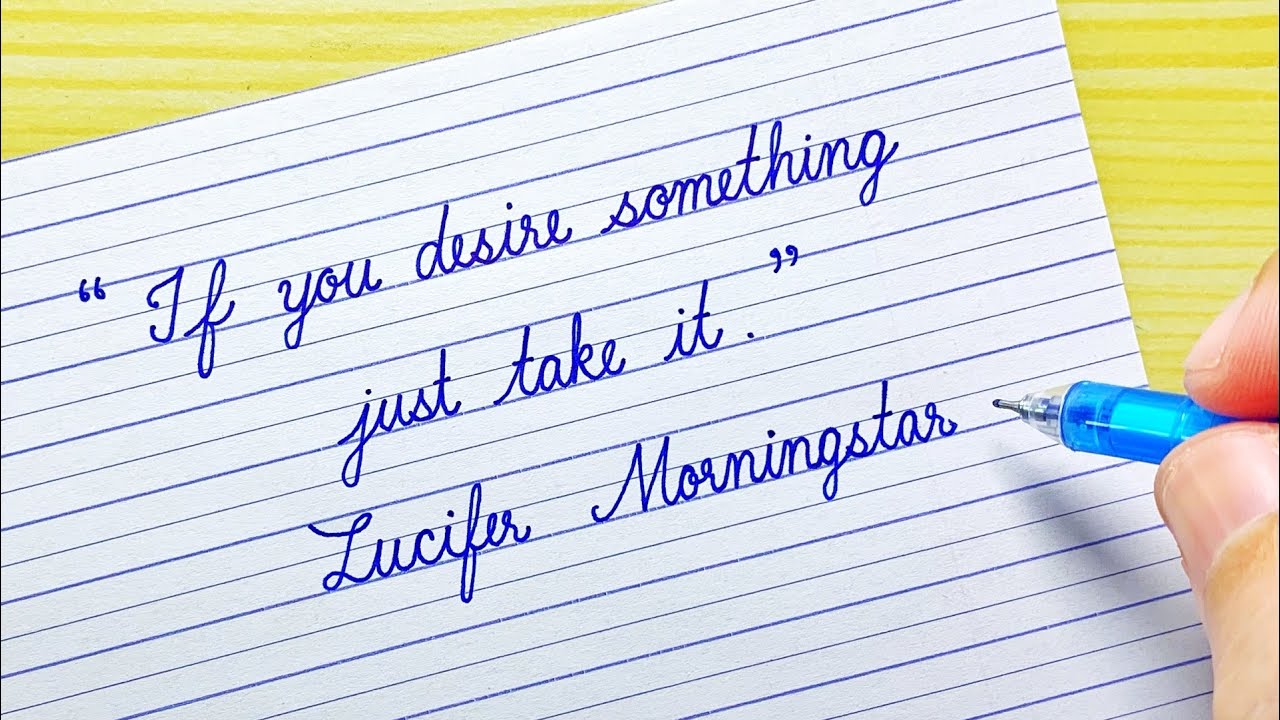 “ If you desire something
just take it. ”
Lucifer Morningstar